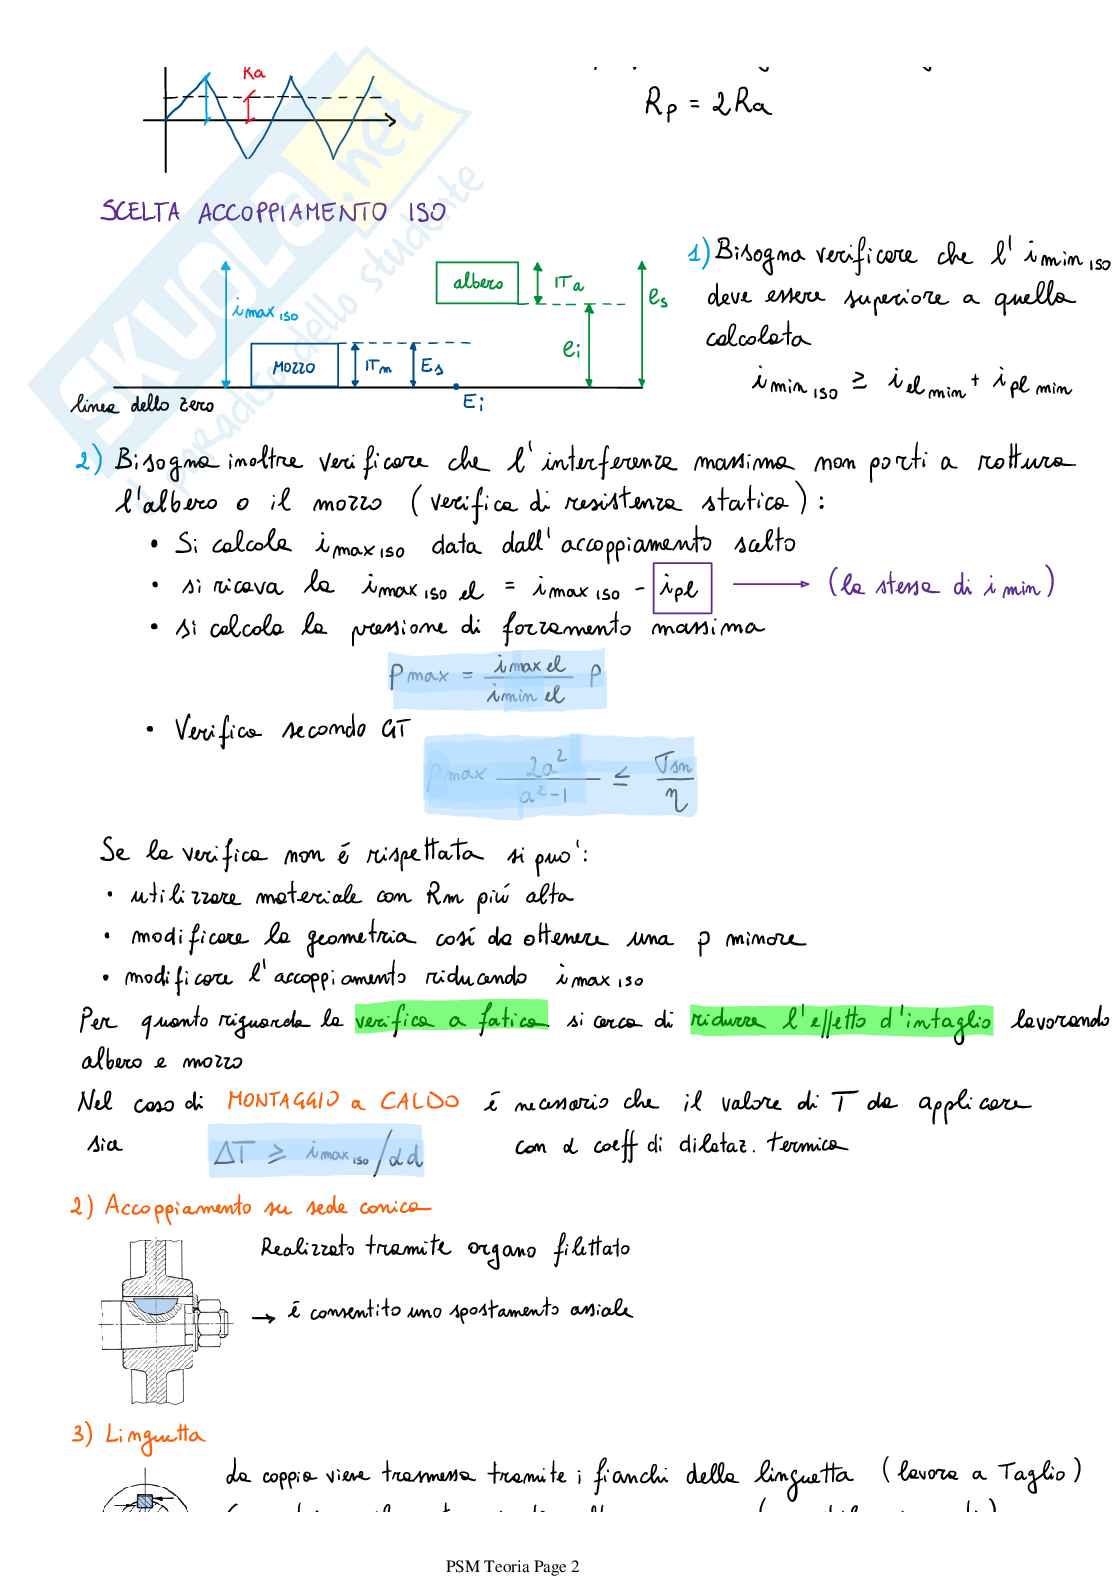 Ra
Rp = 2Ra
SCELTA ACCOPPIAMENTO ISO
i max ISO
MOZZO
ITm
Es
Ei
albero
ITa
ei
es
linea dello zero
1) Bisogna verificare che l' i min ISO
deve essere superiore a quella
calcolata
i min ISO ≥ i el min + i pl min
2) Bisogna inoltre verificare che l'interferenza massima non porti a rottura
l'albero o il mozzo (verifica di resistenza statica):
• Si calcola i max ISO data dall'accoppiamento scelto
• si ricava la i max ISO el = i max ISO - ipl → (la stessa di i min)
• si calcola la pressione di forzamento massima
P max = i max el / i min el P
• Verifica secondo GT
P max 2a² / a²-1 ≤ σsn / η
Se la verifica non é rispettata si puo':
• utilizzare materiale con Rm piú alta
• modificare la geometria cosí da ottenere una p minore
• modificare l'accoppiamento riducendo i max ISO
Per quanto riguarda la verifica a fatica si cerca di ridurre l'effetto d'intaglio lavorando
albero e mozzo
Nel caso di MONTAGGIO a CALDO é necessario che il valore di T da applicare
sia ΔT ≥ i max ISO / αd con α coeff di dilataz. termica
2) Accoppiamento su sede conica
Realizzato tramite organo filettato
→ é consentito uno spostamento assiale
3) Linguetta
La coppia viene trasmessa tramite i fianchi della linguetta (lavora a Taglio)
PSM Teoria Page 2
SKUOLA.net
il paradiso dello studente